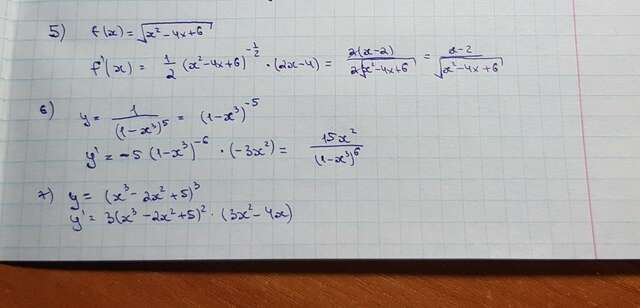 5) f(x) = √(x² - 4x + 6)
f'(x) = 1/2 (x² - 4x + 6)^(-1/2) · (2x - 4) = 2(x - 2)/(2√(x² - 4x + 6)) = (x - 2)/√(x² - 4x + 6)
6) y = 1/(1 - x³)⁵ = (1 - x³)⁻⁵
y' = -5 (1 - x³)⁻⁶ · (-3x²) = 15x²/(1 - x³)⁶
7) y = (x³ - 2x² + 5)³
y' = 3(x³ - 2x² + 5)² · (3x² - 4x)